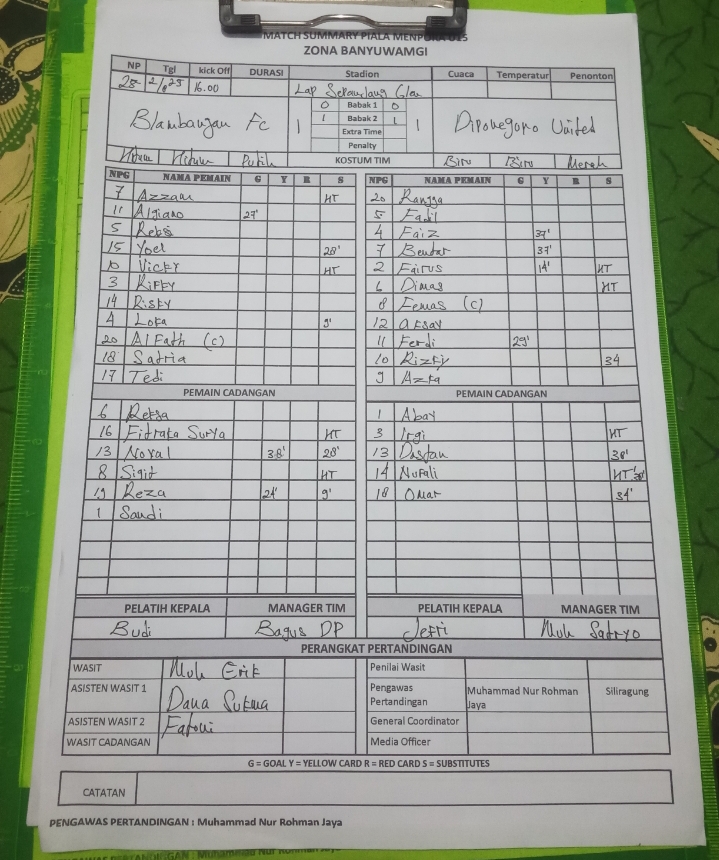 MATCH SUMMARY PIALA MENPORA U15
ZONA BANYUWAMGI
NP Tgl kick Off DURASI Stadion Cuaca Temperatur Penonton
16.00 Lap
0 Babak 1 0
Blambangan Fc 1 1 Babak 2 1 1 Diponegoro United
Extra Time
Penalty
Hitam Hitam Putih KOSTUM TIM Biru Biru Merah
NPG NAMA PEMAIN G Y R S NPG NAMA PEMAIN G Y R S
7 Azzam HT 20 Rangga
11 Algiano 27' 5 Fadil
5 Reksi 4 Faiz 37'
15 Yoel 28' 7 37'
10 Vicky HT 2 Fairus 14' HT
3 Rifky 6 Dimas HT
14 Risky 8 (C)
4 Loka 9' 12
20 Al Fath (C) 11 Ferdi 29'
18 Satria 10 Rizky 34
17 Tedi 9 Azka
PEMAIN CADANGAN PEMAIN CADANGAN
6 Reksa 1 Abay
16 Fitrata Surya HT 3 Irgi HT
13 Noval 38' 28' 13 Dastan
8 Sigit HT 14 Nufali HT
19 Reza 24' 9' 18 Omar 34'
1 Sandi
PELATIH KEPALA MANAGER TIM PELATIH KEPALA MANAGER TIM
Budi Bagus DP Jefri Muh Satryo
PERANGKAT PERTANDINGAN
WASIT Muh Erik Penilai Wasit
ASISTEN WASIT 1 Dana Sukma Pengawas Pertandingan Muhammad Nur Rohman Jaya Siliragung
ASISTEN WASIT 2 Fatoni General Coordinator
WASIT CADANGAN Media Officer
G = GOAL Y = YELLOW CARD R = RED CARD S = SUBSTITUTES
CATATAN
PENGAWAS PERTANDINGAN : Muhammad Nur Rohman Jaya